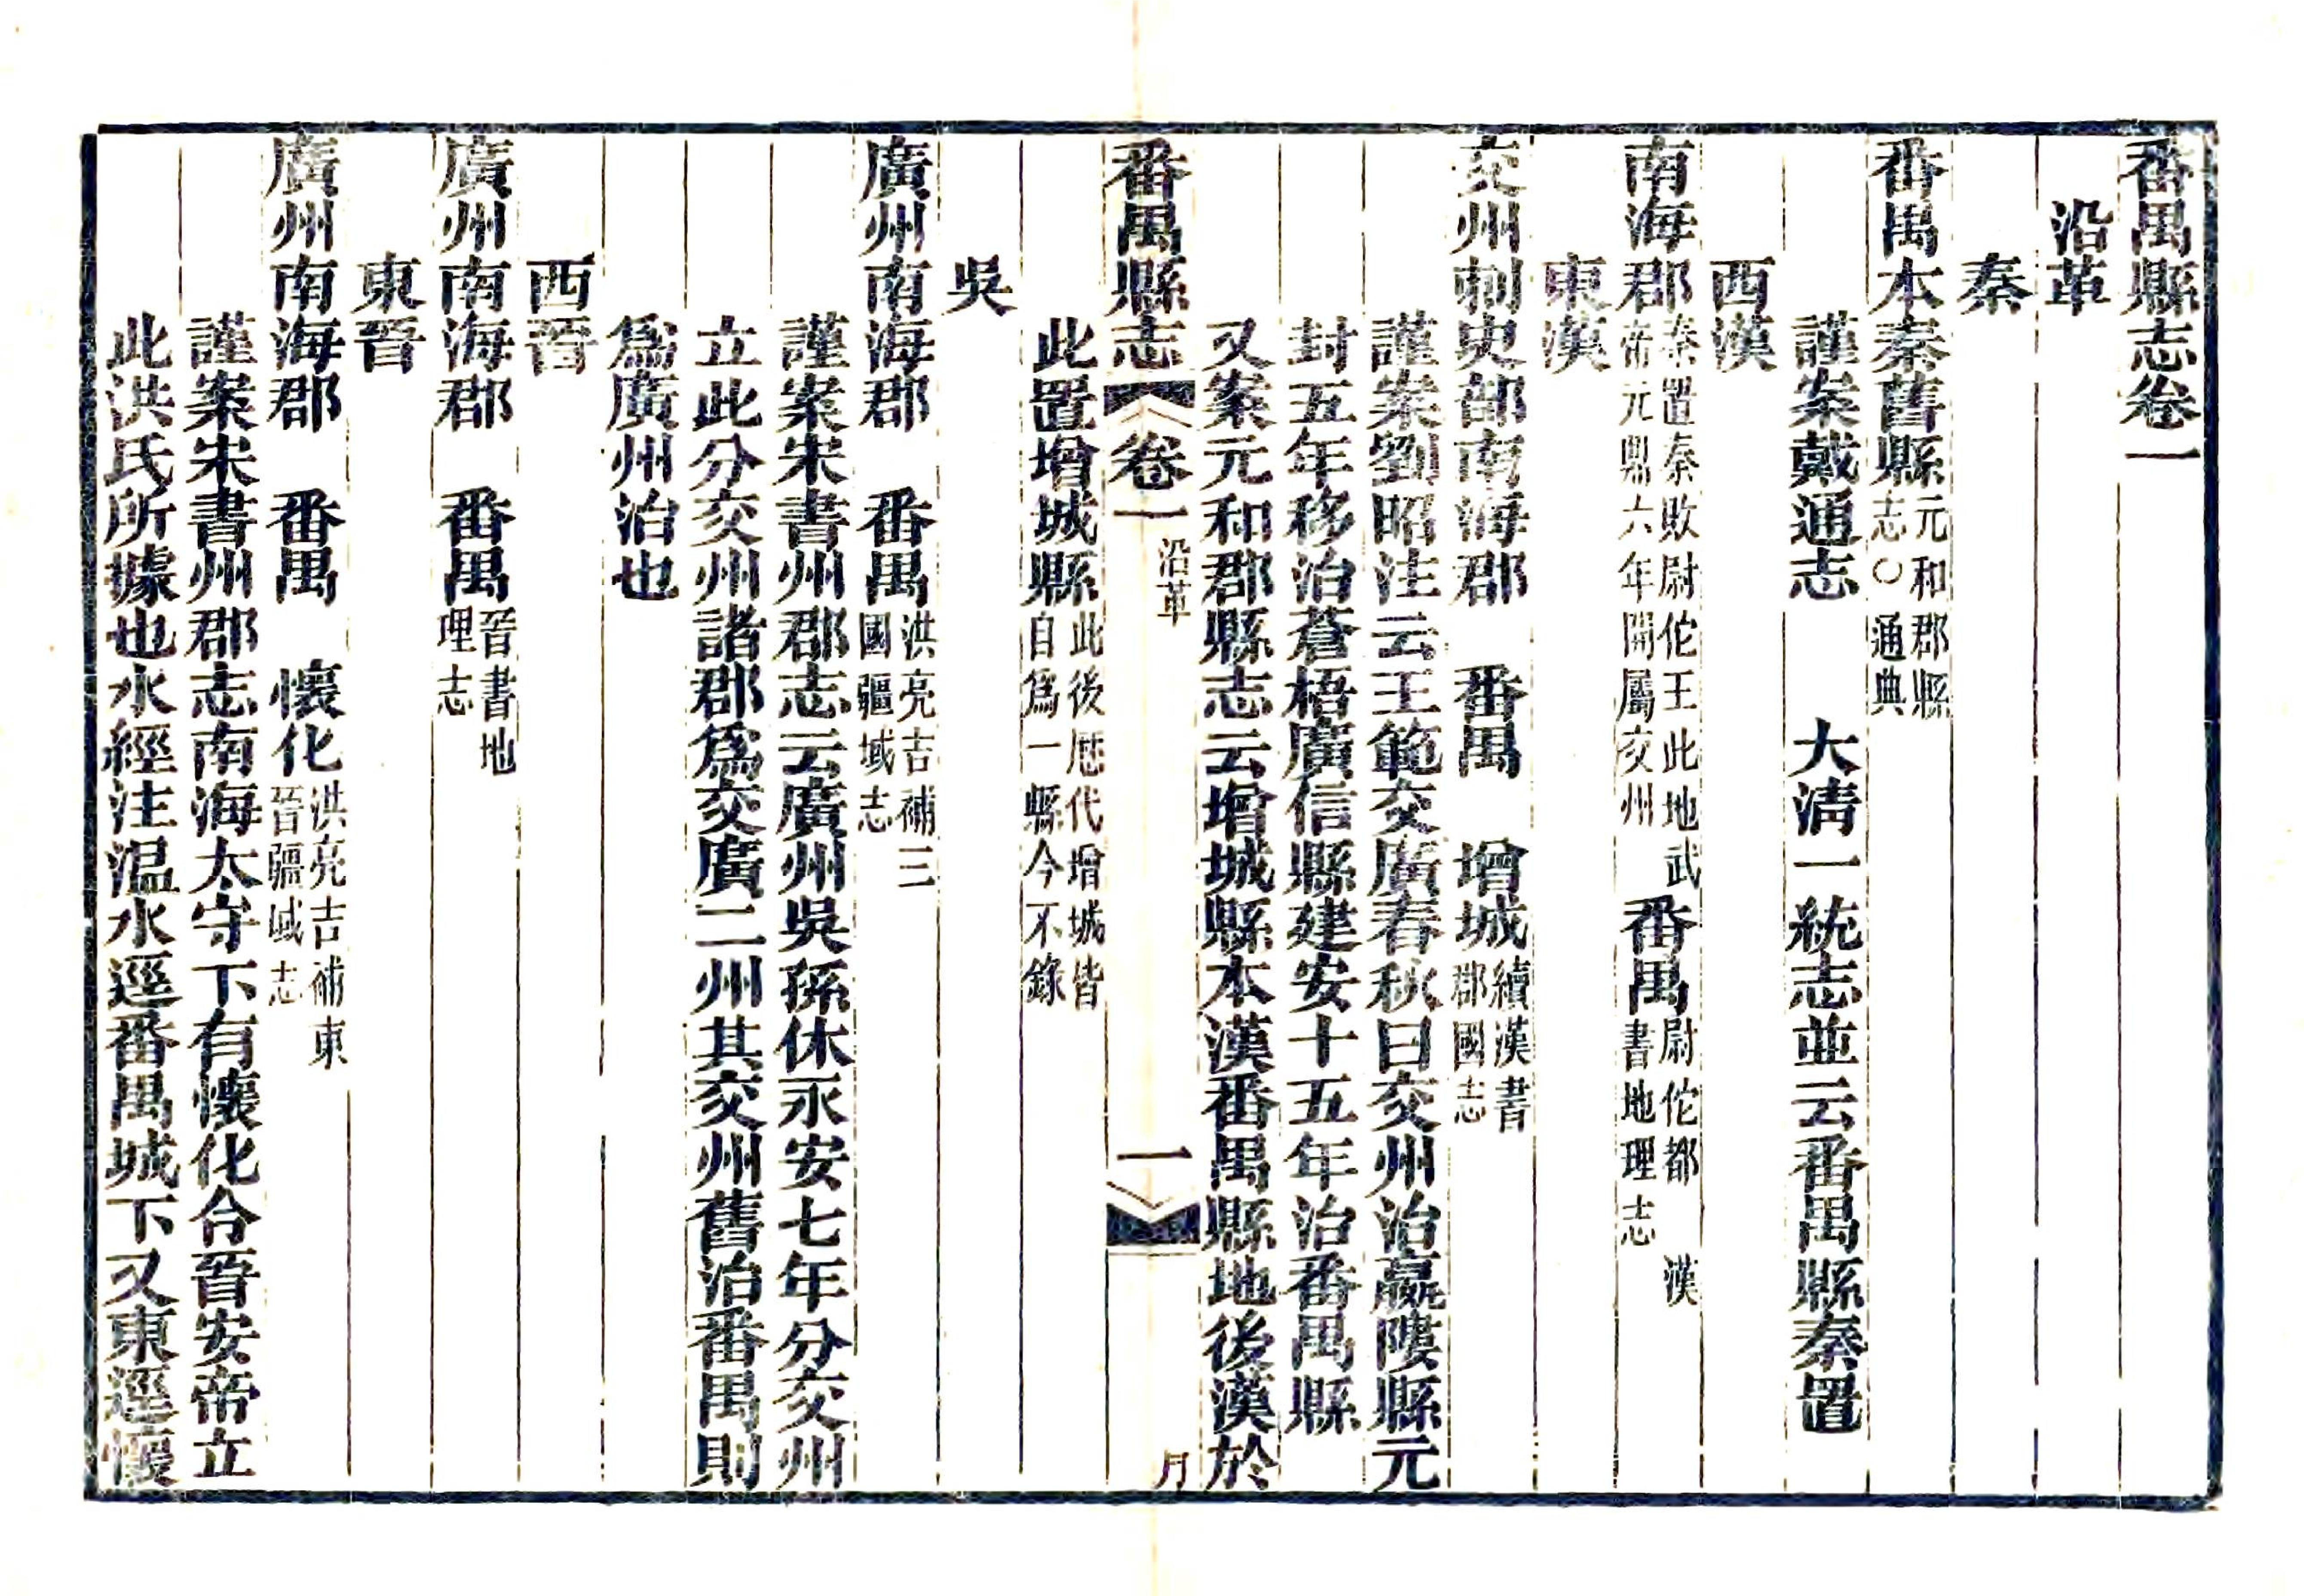 番禺縣志卷一
沿革
秦
番禺本秦舊縣元和郡縣志〇通典
謹案戴通志　大清一統志並云番禺縣秦置
西漢
南海郡秦置秦敗尉佗王此地武帝元鼎六年開屬交州　番禺尉佗都　漢書地理志
東漢
交州刺史部南海郡　番禺　增城續漢書郡國志
謹案劉昭注云王範交廣春秋曰交州治羸𨻻縣元
封五年移治蒼梧廣信縣建安十五年治番禺縣
又案元和郡縣志云增城縣本漢番禺縣地後漢於
番禺縣志　卷一　沿革　一
此置增城縣此後歷代增城皆自爲一縣今不錄
吳
廣州南海郡　番禺洪亮吉補三國疆域志
謹案宋書州郡志云廣州吳孫休永安七年分交州
立此分交州諸郡爲交廣二州其交州舊治番禺則
爲廣州治也
西晉
廣州南海郡　番禺晉書地理志
東晉
廣州南海郡　番禺　懷化洪亮吉補東晉疆域志
謹案宋書州郡志南海太守下有懷化令晉安帝立
此洪氏所據也水經注溫水逕番禺城下又東逕懷